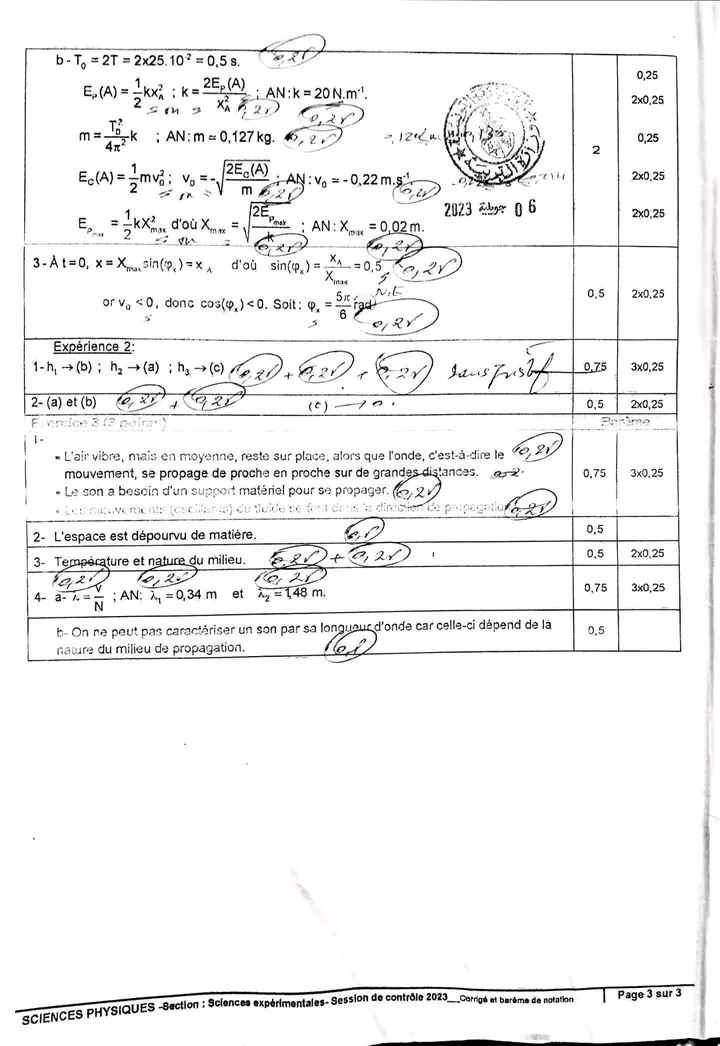 b - T₀ = 2T = 2x25.10⁻² = 0,5 s. 0,25
0,25
E_P(A) = 1/2 kx_A² ; k = 2E_P(A)/x_A² ; AN : k = 20 N.m⁻¹. 2x0,25
0,25 0,25
m = T₀²/4π² k ; AN : m ≃ 0,127 kg. 0,25 0,25
2
E_C(A) = 1/2 mv₀² ; v₀ = -√(2E_C(A)/m) ; AN : v₀ ≃ - 0,22 m.s⁻¹ 2x0,25
0,25 0,25
2023 جويلية 06
E_Pmax = 1/2 kX²max d'où Xmax = √(2E_Pmax/k) ; AN : Xmax = 0,02 m. 2x0,25
0,25 0,25
3 - À t = 0, x = Xmax sin(φₓ) = x_A d'où sin(φₓ) = x_A/Xmax = 0,5 0,25
0,5 2x0,25
or v₀ < 0, donc cos(φₓ) < 0. Soit : φₓ = 5π/6 rad
0,25
Expérience 2:
1- h₁ → (b) ; h₂ → (a) ; h₃ → (c) 0,25 + 0,25 + 0,25 0,75 3x0,25
2- (a) et (b) 0,25 + 0,25 (c) → 0. 0,5 2x0,25
Exercice 3 (3 points) Barème
1-
• L'air vibre, mais en moyenne, reste sur place, alors que l'onde, c'est-à-dire le 0,25
mouvement, se propage de proche en proche sur de grandes distances. 0,75 3x0,25
• Le son a besoin d'un support matériel pour se propager. 0,25
• Les mouvements (oscillants) du fluide se font dans la direction de propagation 0,25
2- L'espace est dépourvu de matière. 0,5 0,5
3- Température et nature du milieu. 0,25 + 0,25 0,5 2x0,25
0,25 0,25 0,25
4- a- λ = v/N ; AN: λ₁ = 0,34 m et λ₂ = 1,48 m. 0,75 3x0,25
b- On ne peut pas caractériser un son par sa longueur d'onde car celle-ci dépend de la 0,5
nature du milieu de propagation. 0,5
SCIENCES PHYSIQUES -Section : Sciences expérimentales- Session de contrôle 2023__Corrigé et barème de notation Page 3 sur 3